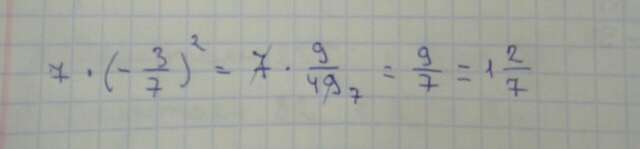 7 · (- 3/7)² = 7 · 9/49 7 = 9/7 = 1 2/7